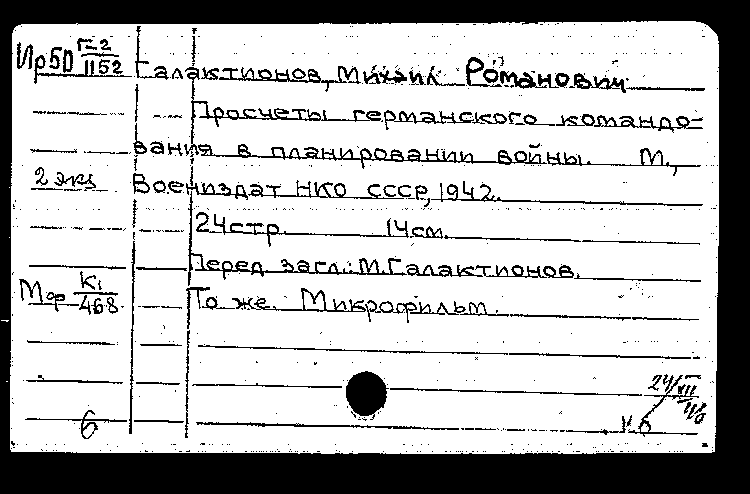 Ир5D Г-2/1152 Галактионов, Михаил Романович
Просчеты германского командо-
вания в планировании войны. М.,
2 экз Воениздат НКО СССР, 1942.
24 стр. 14 см.
Перед загл.: М. Галактионов.
Мф К1/468 То же. Микрофильм.
24/VII
6